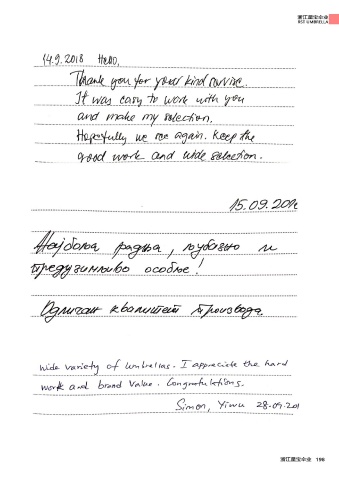 浙江星宝伞业
RST UMBRELLA
14.9.2018 Hello,
Thank you for your kind service.
It was easy to work with you
and make my selection.
Hopefully we see again. Keep the
good work and wide selection.
15.09.201
Најбоља радња, љубазно и
предузимљиво особље!
Одличан квалитет производа.
Wide variety of umbrellas. I appreciate the hard
work and brand value. Congratulations.
Simon, Yiwu 28-09-201
浙江星宝伞业 196